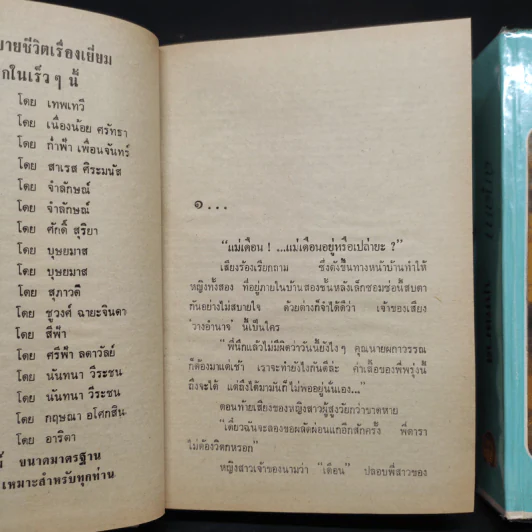 ายชีวิตเรื่องเยี่ยม
กในเร็ว ๆ นี้
โดย เทพเทวี
โดย เนื่องน้อย ศรัทธา
โดย ก่ำฟ้า เพื่อนจันทร์
โดย สาเรส ศิระมนัส
โดย จำลักษณ์
โดย จำลักษณ์
โดย ศักดิ์ สุริยา
โดย บุษยมาส
โดย บุษยมาส
โดย สุภาวดี
โดย ชูวงศ์ ฉายะจินดา
โดย สีฟ้า
โดย ศรีฟ้า ลดาวัลย์
โดย นันทนา วีระชน
โดย นันทนา วีระชน
โดย กฤษณา อโศกสิน
โดย อาริตา
ขนาดมาตรฐาน
เหมาะสำหรับทุกท่าน
๑...
"แม่เดือน ! ...แม่เดือนอยู่หรือเปล่ายะ ?"
เสียงร้องเรียกถาม ซึ่งดังขึ้นทางหน้าบ้านทำให้
หญิงทั้งสอง ที่อยู่ภายในบ้านสองชั้นหลังเล็กซอมซ่อนี้สบตา
กันอย่างไม่สบายใจ ด้วยต่างก็จำได้ดีว่า เจ้าของเสียง
'วางอำนาจ' นี้เป็นใคร
"พี่นึกแล้วไม่มีผิดว่าวันนี้ยังไง ๆ คุณนายผกาวรรณ
ก็ต้องมาแต่เช้า เราจะทำยังไงกันดีล่ะ ค่าเสื้อของพี่พรุ่งนี้
ถึงจะได้ แต่ถึงได้มามันก็ไม่พออยู่นั่นเอง..."
ตอนท้ายเสียงของหญิงสาวผู้สูงวัยกว่าขาดหาย
"เดี๋ยวฉันจะลองขอผลัดผ่อนแกอีกสักครั้ง พี่ดารา
ไม่ต้องวิตกหรอก"
หญิงสาวเจ้าของนามว่า "เดือน" ปลอบพี่สาวของ